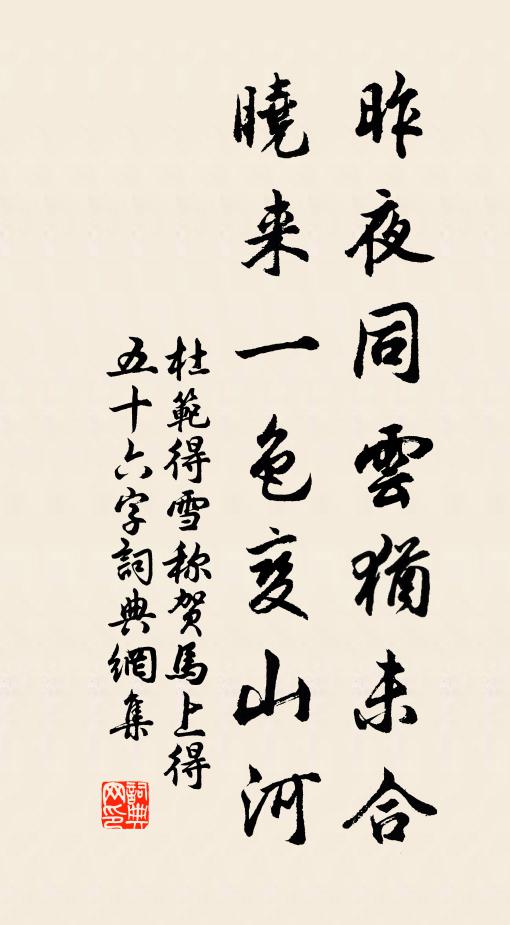 昨夜同雲猶未合
曉来一色变山河
杜範得雪称贺馬上得
五十六字詞典網集
詞典
网印